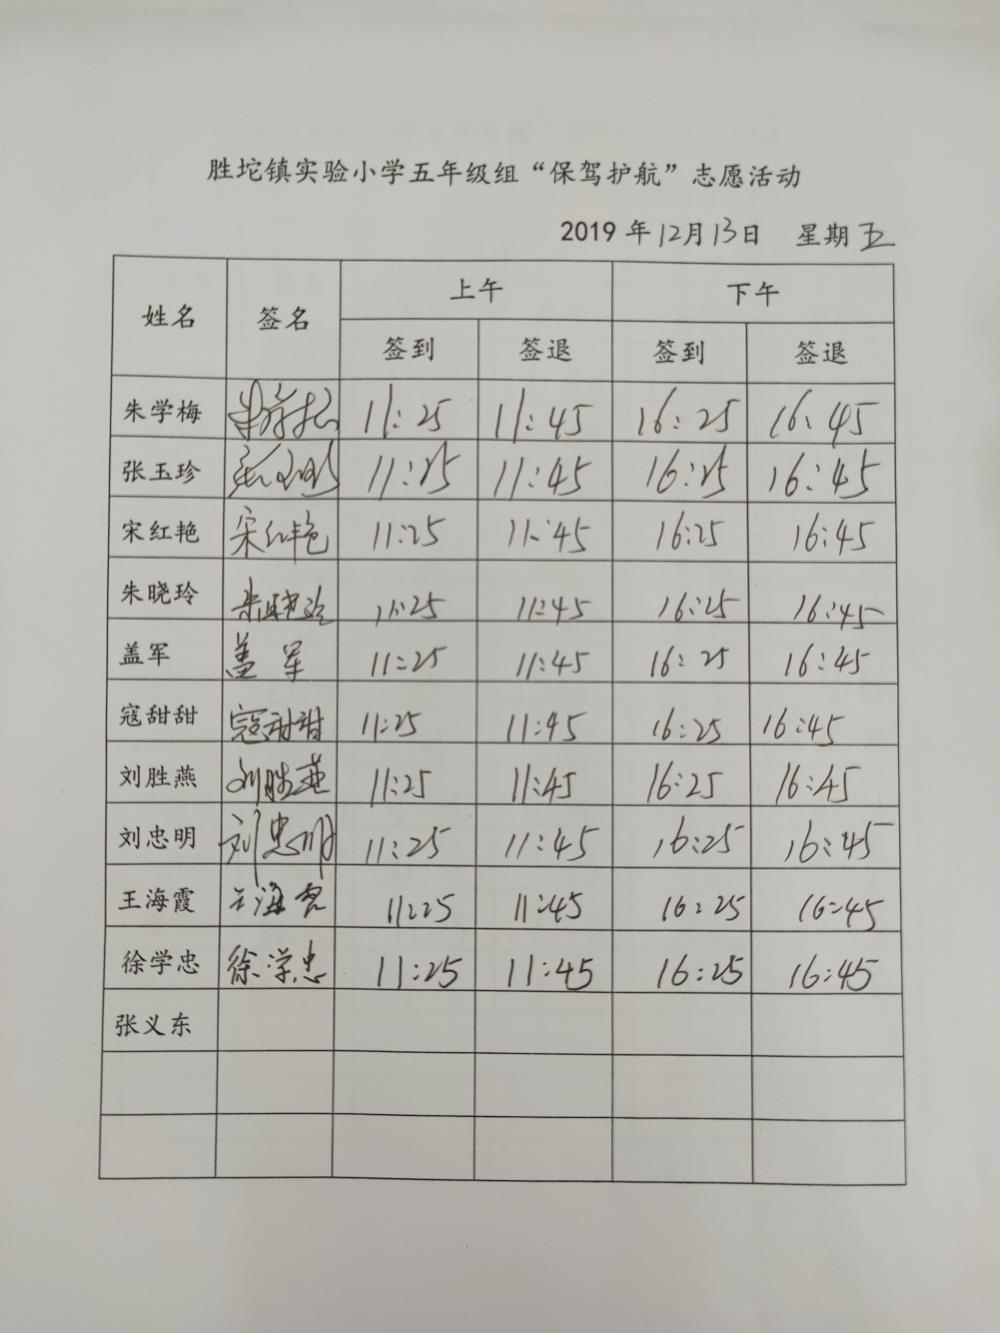 胜坨镇实验小学五年级组“保驾护航”志愿活动
2019年12月13日 星期五
姓名 签名 上午 下午
签到 签退 签到 签退
朱学梅 朱学梅 11:25 11:45 16:25 16:45
张玉珍 张玉珍 11:25 11:45 16:25 16:45
宋红艳 宋红艳 11:25 11:45 16:25 16:45
朱晓玲 朱晓玲 11:25 11:45 16:25 16:45
盖军 盖军 11:25 11:45 16:25 16:45
寇甜甜 寇甜甜 11:25 11:45 16:25 16:45
刘胜燕 刘胜燕 11:25 11:45 16:25 16:45
刘忠明 刘忠明 11:25 11:45 16:25 16:45
王海霞 王海霞 11:25 11:45 16:25 16:45
徐学忠 徐学忠 11:25 11:45 16:25 16:45
张义东